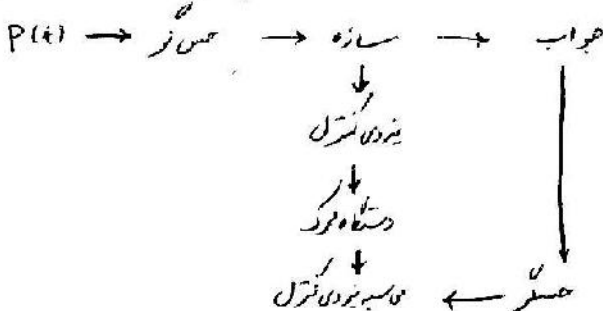 P(t) → حس‌گر → سازه → جواب
نیروی کنترل
دستگاه محرک
محاسبه نیروی کنترل ← حسگر